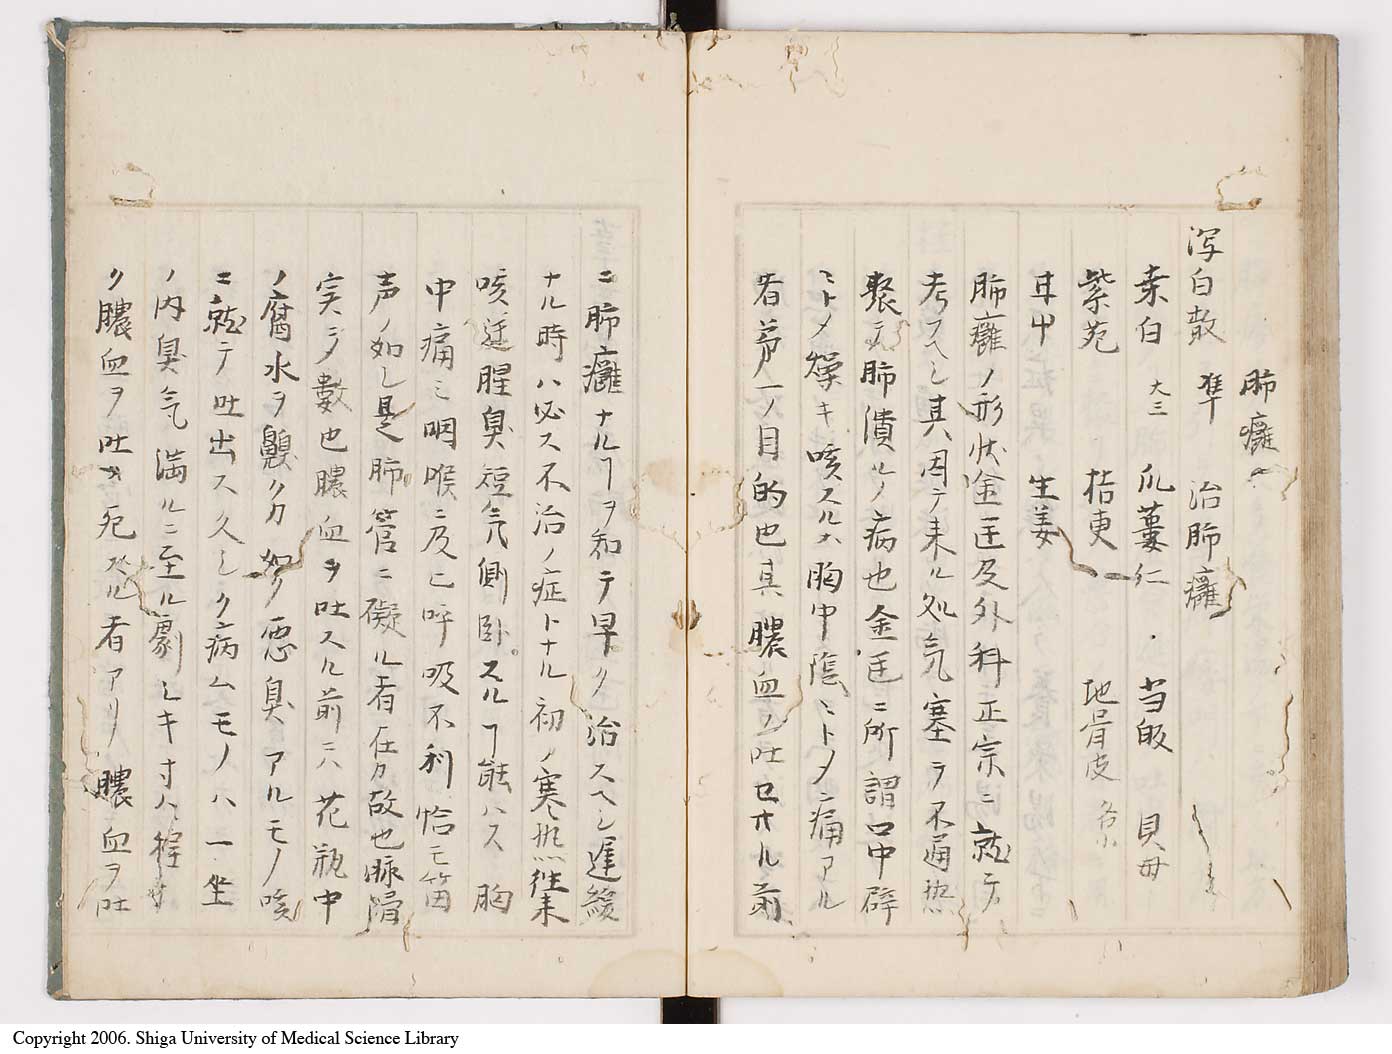 肺癰
瀉白散 準 治肺癰
桒白 大三 爪蔞仁 当皈 貝母
紫苑 桔更 地骨皮 各小
甘中 生姜
肺癰ノ形状金匡及外科正宗ニ就テ
考フヘシ其因テ来ル処気塞ラ不通热
聚テ肺潰ルノ病也金匡ニ所謂口中辟
ミトメ燥キ咳スル片胸中隂ミトメ痛アル
者第一ノ目的也其膿血ノ吐セサル前
ニ肺癰ナルヿヲ知テ早ク治スヘシ遅緩
ナル時ハ必ス不治ノ症トナル初ノ寒热往来
咳逆腥臭短気側卧スルヿ能ハス胸
中痛ミ咽喉ニ及ヒ呼吸不利恰モ笛
声ノ如シ是肺管ニ礙ル者在カ故也脉滑
実ヲ數也膿血ヲ吐スル前ニハ花瓶中
ノ腐水ヲ齅クカ如ク悪臭アルモノ咳
ニ就テ吐出ス久シク病ムモノハ一坐
ノ内臭气満ルニ至ル劇シキ寸ハ
ク膿血ヲ吐キ死スル者アリ膿血ヲ吐
Copyright 2006. Shiga University of Medical Science Library